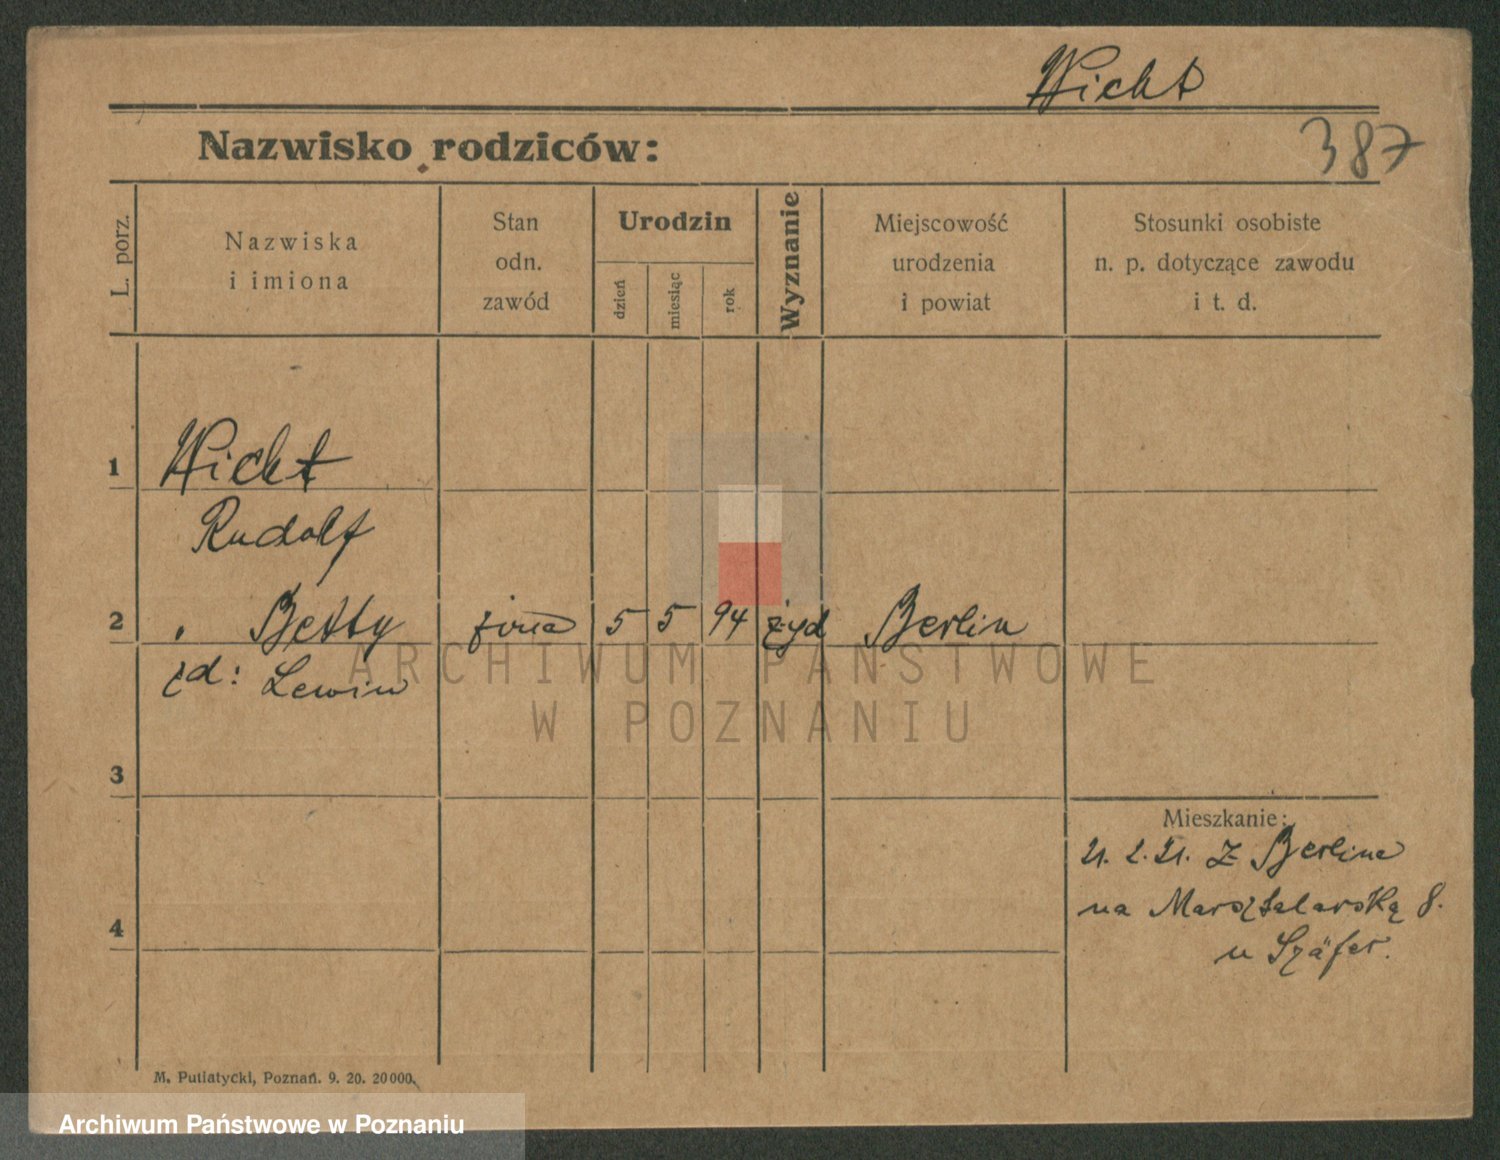 Wicht
Nazwisko rodziców:
387
L. porz.
Nazwiska
i imiona
Stan
odn.
zawód
Urodzin
dzień
miesiąc
rok
Wyznanie
Miejscowość
urodzenia
i powiat
Stosunki osobiste
n. p. dotyczące zawodu
i t. d.
1 Wicht
Rudolf
2 " Betty żona 5 5 94 żyd Berlin
zd: Lewin
ARCHIWUM PAŃSTWOWE
W POZNANIU
3
Mieszkanie:
21. 2. 21. z Berlina
na Marsztalarską 8.
4
u Szäfer.
M. Putiatycki, Poznań. 9. 20. 20000.
Archiwum Państwowe w Poznaniu